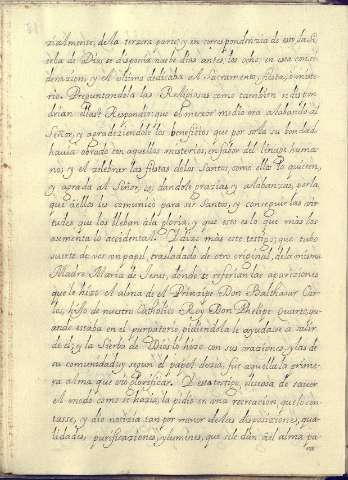 cialmente, de la tercera parte; y en correspondencia de esto la Si-
erba de Dios se disponia nuebe dias antes, los ocho, en esta consi-
deracion, y el ultimo dedicaba al Sacramento, fiesta, o miste-
rio. Preguntandola las Religiosas como tambien se dispon-
drian ellas? Respondió: que el mexor medio era alabando al
Señor, y agradeziendole los beneficios que por sola su bondad
havia obrado con aquellos misterios, en fabor del linaxe huma-
no; y el zelebrar las fiestas de los Santos, como ellos lo quieren,
y agrada al Señor, es, dandole grazias, y alabanzas, por la
que a ellos les comunicó para ser Santos, y conseguir las vir-
tudes que los lleban a la gloria, y que esto es lo que mas les
aumenta lo accidental. Dize mas este testigo, que tubo
suerte de ver un papel, trasladado de otro original, de la misma
Madre Maria de Jesus, donde se referian las apariciones
que la hizo el alma de el Prinzipe Don Balthasar Car-
los, hijo de nuestro Catholico Rey Don Phelipe Quarto, qu-
ando estaba en el purgatorio, pidiendola le ayudase a salir
de el; y la Sierba de Dios lo hizo con sus oraciones, y las de
su comunidad; y segun el papel dezia, fue aquella la prime-
ra alma que vio glorificar. Y esta testigo, deseosa de saver
el modo como se hazia, la pidió en una recreacion, que lo con-
tasse, y dio noticia tan por menor de las disposiciones, qua-
lidades, purificaciones, y lumines, que se le dan a el alma pa-
ra